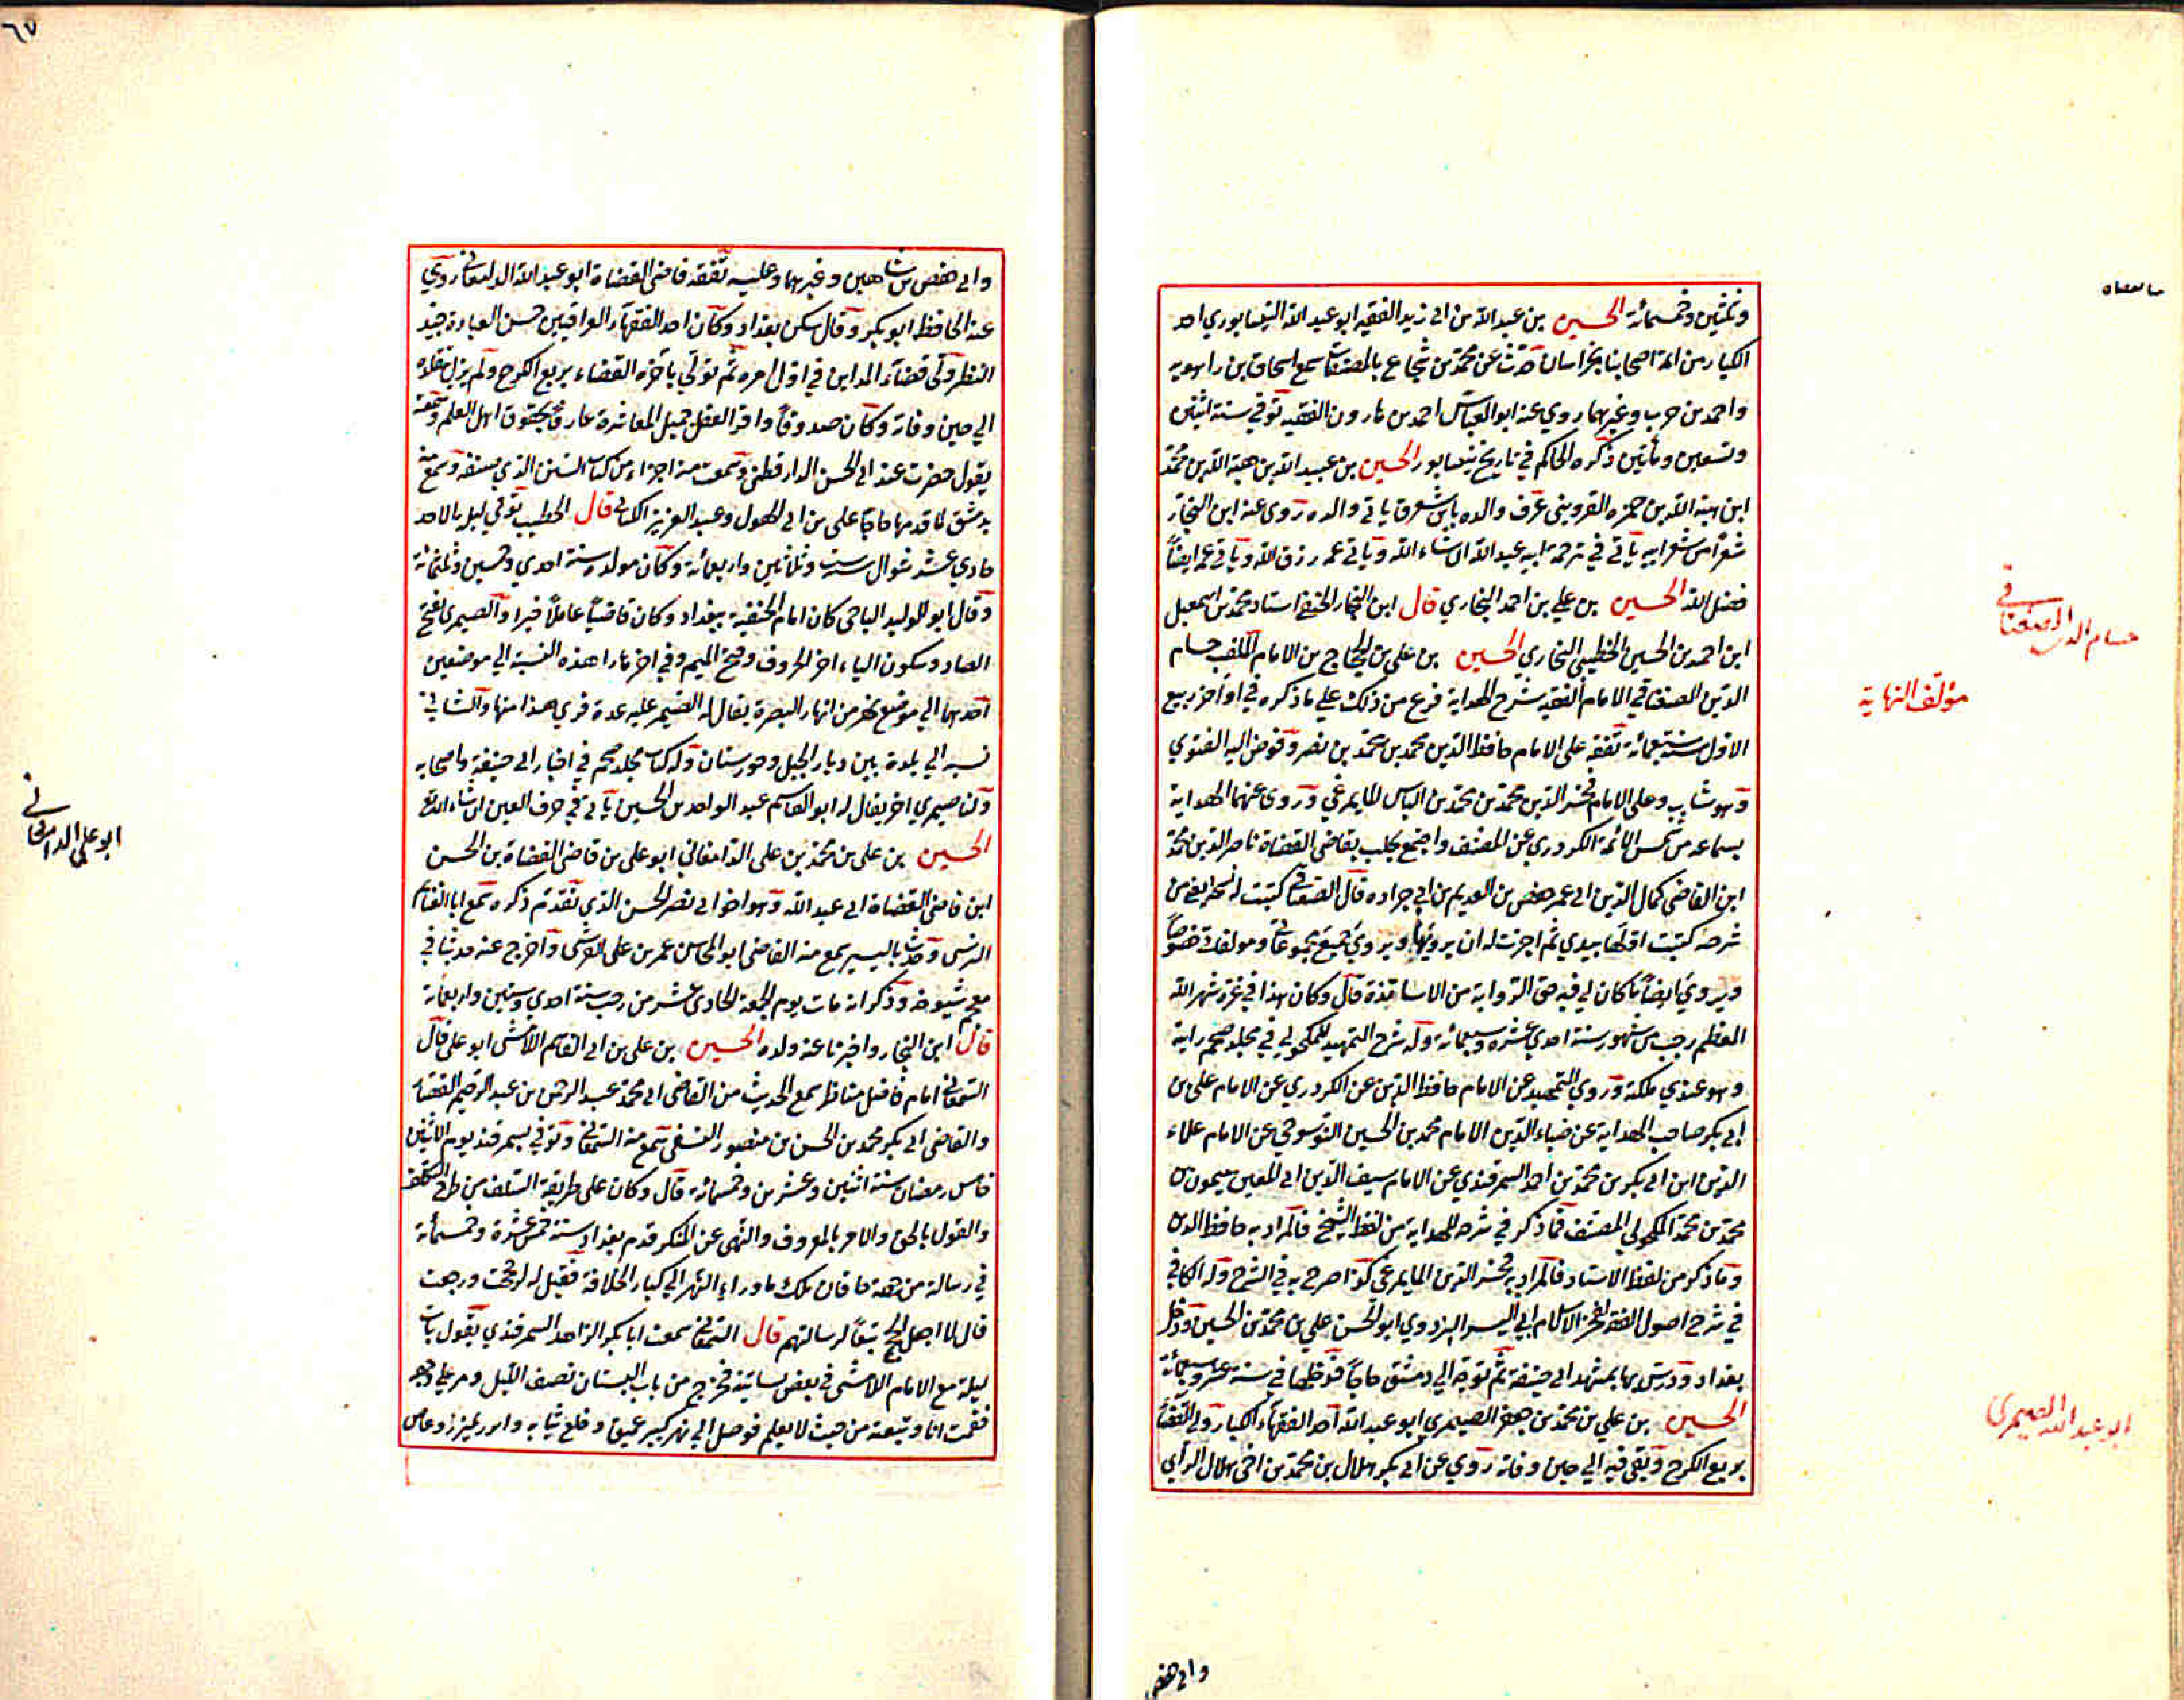 وثمثين وخمسمائة الحسين بن عبد الله بن ابي زيد الفقيه ابو عبد الله النيسابوري احد
الكبار من ائمة اصحابنا بخراسان حدث عن محمد بن شجاع بالمصنفات سمع اسحاق بن راهويه
واحمد بن حرب وغيرهما روي عنه ابو العباس احمد بن هارون الفقيه توفي سنة اثنين
وتسعين ومأتين ذكره الحاكم في تاريخ نيسابور الحسين بن عبيد الله بن هبة الله بن محمد
ابن هبة الله بن حمزه القزويني عرف والده بابن شعرق ياتي والده روى عنه ابن النجار
شعرا من شعر ابيه يأتي في ترجمة ابيه عبيد الله ان شاء الله ويأتي عمه رزق الله ويأتي عمه ايضاً
فضل الله الحسين بن علي بن احمد البخاري قال ابن النجار الحنفي استاد محمد بن اسمعيل
ابن احمد بن الحسين الخطيبي البخاري الحسين بن علي بن الحجاج بن الامام الملقب حسام
الدين الصغناقي الامام الفقيه شرح الهداية فرغ من ذلك علي ما ذكره في اواخر ربيع
الاول سنة سبعمائة تفقه على الامام حافظ الدين محمد بن محمد بن نصر وفوض اليه الفتوي
وهو شاب وعلى الامام فخر الدين محمد بن محمد بن الياس المايمرغي وروى عنهما الهداية
بسماعه من شمس الائمة الكردري عن المصنف واجتمع بحلب بقاضي القضاة ناصر الدين محمد
ابن القاضي كمال الدين ابي عمر حفص بن العديم بن ابي جراده قال الصغناقي كتبت له نسخة من
شرحه كتبت اولها بيدي ثم اجزت له ان يرويها ويروي جميع مجموعاتي ومولفاتي خصوصاً
ويروي ايضاً ما كان لي فيه حق الرواية من الاساتذة قال وكان هذا في غرة شهر الله
المعظم رجب من شهور سنة احدي عشرة وسبعمائة وله شرح التمهيد للمكحولي في مجلد ضخم رايته
وهو عندي ملكته وروي التمهيد عن الامام حافظ الدين عن الكردري عن الامام على بن
ابي بكر صاحب الهداية عن ضياء الدين الامام محمد بن الحسين النوسوخي عن الامام علاء
الدين ابن ابي بكر بن محمد بن احمد السمرقندي عن الامام سيف الدين ابي المعين ميمون بن
محمد بن محمد المكحولي المصنف فما ذكر في شرحه للهداية من لفظ الشيخ فالمراد به حافظ الدين
وما ذكر من لفظ الاستاد فالمراد به فخر الدين المايمرغي كذا صرح به في الشرح وله الكافي
في شرح اصول الفقه لفخر الاسلام ابي اليسر البزدوي ابو الحسن علي بن محمد بن الحسين ودخل
بغداد ودرس بها بمشهد ابي حنيفة ثم توجه الي دمشق حاجاً فدخلها في سنة عشر وسبعمائة
الحسين بن علي بن محمد بن جعفر الصيمري ابو عبد الله احد الفقهاء الكبار ولي القضاء
بربع الكرخ وبقي فيه الي حين وفاته روي عن ابي بكر هلال بن محمد بن اخي هلال الرأي
وابي حفص
حسام الدين الصغناقي
مؤلف النهاية
ابو عبد الله الصيمري
٦٧
وابي حفص بن شاهين وغيرهما وعليه تفقه قاضي القضاة ابو عبد الله الدامغاني روي
عنه الحافظ ابو بكر وقال سكن بغداد وكان احد الفقهاء العراقيين حسن العبارة جيد
النظر ولي قضاء المداين في اول امره ثم تولي بآخره القضاء بربع الكرخ ولم يزل يتقلده
الي حين وفاته وكان صدوقاً وافر العقل جميل المعاشرة عارفاً بحقوق اهل العلم وسمعته
يقول حضرت عند ابي الحسن الدارقطني وسمعت منه اجزاء من كتاب السنن الذي صنفه وسمع منه
بدمشق لما قدمها حاجا على بن ابي الهول وعبد العزيز الكتاني قال الخطيب توفي ليلة الاحد
حادي عشر شوال سنة ست وثلثين واربعمائة وكان مولده سنة احدي وخمسين وثلثمائة
وقال ابو الوليد الباجي كان امام الحنفية ببغداد وكان قاضياً عاملا خيرا والصيمري بفتح
الصاد وسكون الياء اخر الحروف وفتح الميم وفي اخرها را هذه النسبة الي موضعين
احدهما الي موضع نهر من انهار البصرة يقال له الصيمر عليه عدة قرى هذا منها والثاني
نسبه الي بلدة بين ديار الجبل وخورستان وله كتاب مجلد ضخم في اخبار ابي حنيفة واصحابه
ولنا صيمري اخر يقال له ابو القاسم عبد الواحد بن الحسين يأتي في حرف العين ان شاء الله تع
الحسين بن على بن محمد بن على الدامغاني ابو على بن قاضي القضاة بن الحسن
ابن قاضي القضاة ابي عبد الله وهو اخو ابي نصر الحسن الذي تقدم ذكره سمع ابا الغنايم
النرسي وحدث باليسير سمع منه القاضي ابو المحاسن عمر بن على القرشي واخرج عنه حديثا في
معجم شيوخه وذكر انه مات يوم الجمعة الحادي عشر من رجب سنة احدي وستين واربعمائة
قال ابن النجار واخبرنا عنه ولده الحسين بن على بن ابي القاسم اللامشي ابو على قال
السمعاني امام فاضل مناظر سمع الحديث من القاضي ابي محمد عبد الرحمن بن عبد الرحيم القضاة
والقاضي ابي بكر محمد بن الحسن بن منصور النسفي سمع منه السمعاني وتوفي بسمرقند يوم الاثنين
خامس رمضان سنة اثنين وعشرين وخمسمائة قال وكان على طريقة السلف من طرح التكلف
والقول بالحق والامر بالمعروف والنهي عن المنكر قدم بغداد سنة خمس عشرة وخمسمائة
في رسالة من جهة خاقان ملك ما وراء النهر الي كبار الخلافة فقيل له لو حججت ورجعت
قال لا اجعل الحج تبعاً لرسالتهم قال السمعاني سمعت ابا بكر الزاهد السمرقندي يقول بات
ليلة مع الامام اللامشي في بعض بساتينه فخرج من باب البستان نصف الليل ومر علي وجهه
فقمت انا وتبعته من حيث لا يعلم فوصل الي نهر كبير عميق وخلع ثيابه واتزر بميزر وغاص
ابو علي الدامغاني